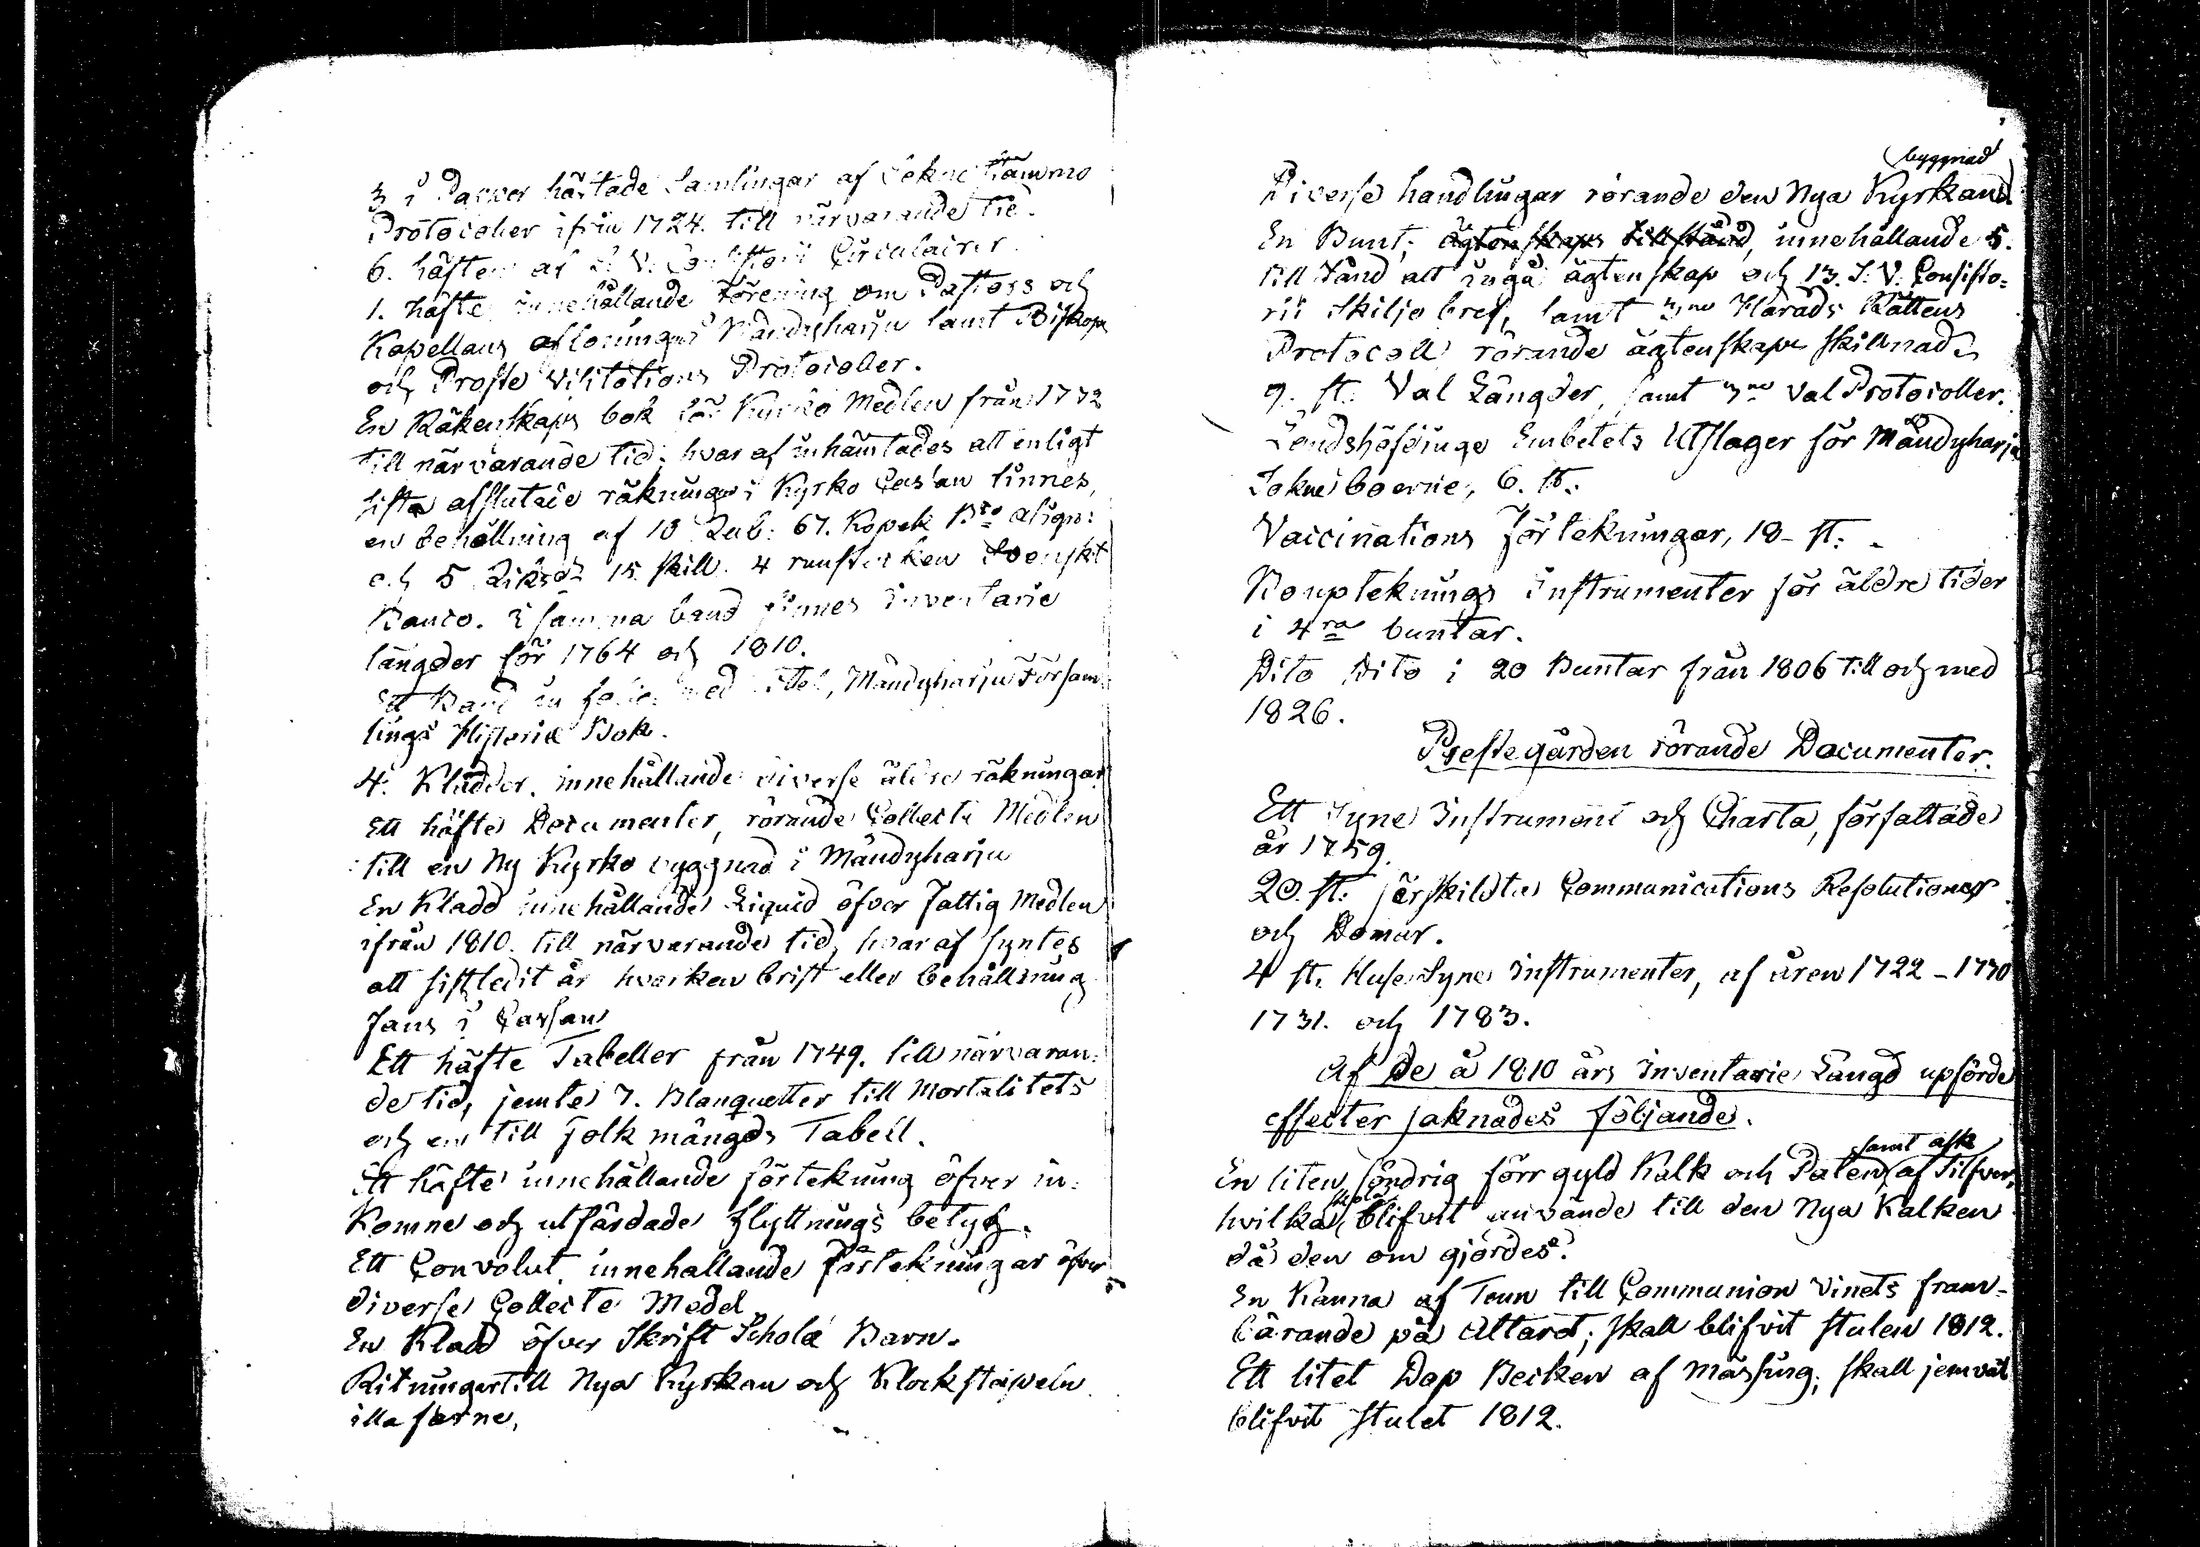 3 i Packor häftade Samlingar af Sokne Stämmo
Protocoller ifrån 1724. till närvarande tid.
6. häften af Circulairer.
1. häfte innehållande Förening om Pastors och
Kapellans aflöningar i Mändyharju samt Biskops
och Proste Visitations Protocoller.
En Räkenskaps bok för Kyrko Medlen från 1772
till närvarande tid; hvaraf inhämtades att enligt
sista afslutade räkningar i Kyrko Cassan finnes,
en behållning af 10 Rub: 67. Kopek Bco Assign:
och 5 Riksd: 15 skill. 4 runstycken Svenskt
Banco. I samma band finnes Inventarie
längder för 1764 och 1810.
Ett Band in folio med titel, Mändyharju Försam-
lings Historiæ Bok.
4. Kladdor, innehållande diverse äldre räkningar
Ett häfte Documenter, rörande Collecte Medlen
till en Ny Kyrko byggnad i Mändyharju
En Kladd innehållande Liquid öfver Fattig Medlen
ifrån 1810. till närvarande tid, hvaraf syntes
att sistledit år hvarken brist eller behållning
fans i Cassan
Ett häfte Tabeller från 1749. till närvaran-
de tid, jemte 7. Blanquetter till Mortalitets
och en till folk mängds Tabell.
Ett häfte innehållande förtekning öfver in-
komne och utfärdade flyttnings betyg.
Ett Convolut innehallande förtekningar öfver
diverse Collecte Medel
En Kladd öfver Skrift Schola Barn.
Ritningar till Nya Kyrkan och Klockstapeln
illa farne,
byggnad
Diverse handlingar rörande den Nya Kyrkans
En Bunt, ägtenskaps tillstånd, innehållande 5.
tillstånd att ingå ägtenskap och 13. S: V: Consisto-
rii skiljobref, samt 3ne Härads Rättens
Protocoll rörande ägtenskaps skillnad
9. st. Val Längder, samt 3ne Val Protocoller.
Landshöfdinge Embetets Utslager för Mändyharju
Sokneboerne, 6. st.
Vaccinations Förtekningar, 18 st.
Bouptecknings Instrumenter för äldre tider
i 4ra buntar.
Dito Dito i 20 Buntar från 1806 till och med
1826.
Prestegården rörande Documenter.
Ett Syne Instrument och Charta, författade
år 1759.
20. st. särskildte Communications Resolutioner
och Domar.
4 st. Huse Syne Instrumenter, af åren 1722 - 1730
1731. och 1783.
Af de å 1810 års Inventarie Längd upförde
effecter saknades följande.
samt ask
En liten söndrig förrgyld Kalk och Paten, af Silfver,
skola
hvilka blifvit använde till den Nya Kalken
då den omgjordes.
En Kanna af Tenn till Communion Vinets fram-
bärande på Altaret; skall blifvit stulen 1812.
Ett litet Dop Becken af Mässing, skall jemväl
blifvit stulet 1812.